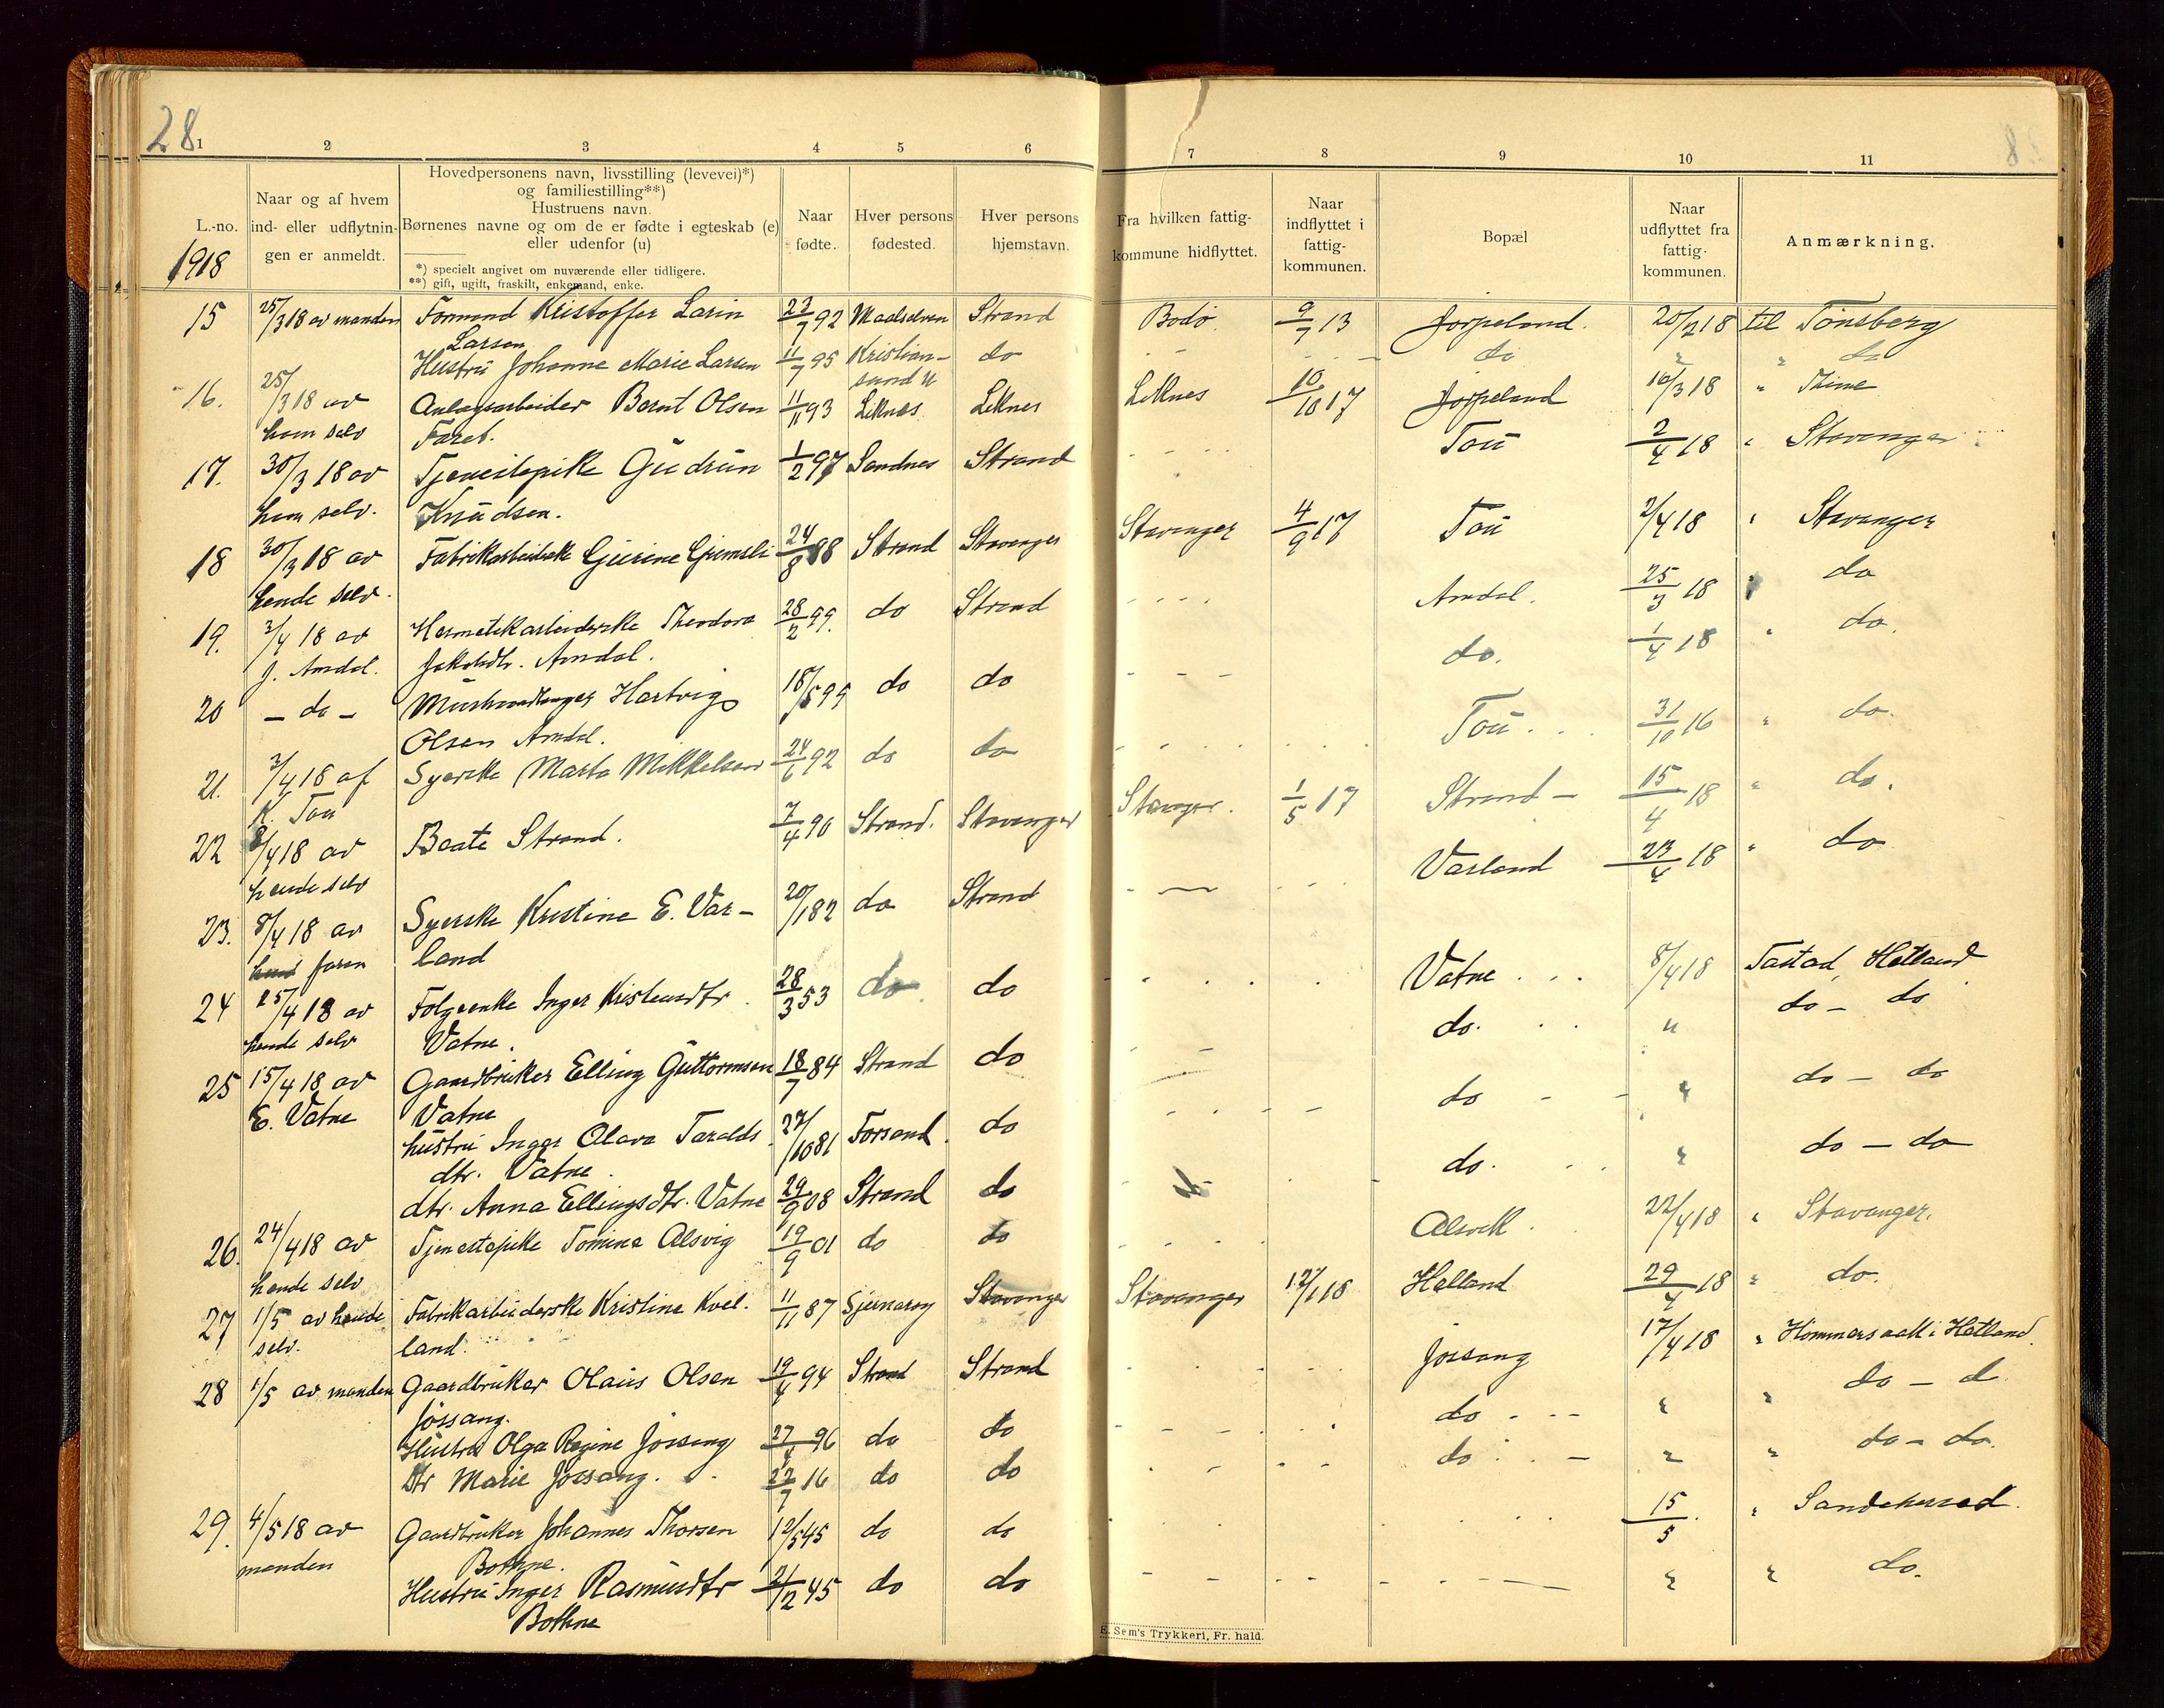 28
1 2 3 4 5 6 7 8 9 10 11
L.-no.
1918
Naar og af hvem
ind- eller udflytnin-
gen er anmeldt.
Hovedpersonens navn, livsstilling (levevei)*)
og familiestilling**)
Hustruens navn.
Børnenes navne og om de er fødte i egteskab (e)
eller udenfor (u)
*) specielt angivet om nuværende eller tidligere.
**) gift, ugift, fraskilt, enkemand, enke.
Naar
fødte.
Hver persons
fødested.
Hver persons
hjemstavn.
Fra hvilken fattig-
kommune hidflyttet.
Naar
indflyttet i
fattig-
kommunen.
Bopæl
Naar
udflyttet fra
fattig-
kommunen.
Anmærkning.
15 25/3 18 av manden Formand Kristoffer Larin 23/7 92 Maalselven Strand Bodø 9/7 13 Jørpeland. 20/2 18 til Tønsberg
Larsen
Hustru Johanne Marie Larsen 11/7 95 Kristian- do - - - - do " " do
sund N
16. 25/3 18 av Anlægsarbeider Bernt Olsen 11/11 93 Liknes Liknes Liknes 10/10 17 Jørpeland 16/3 18 " Time
ham selv Faret.
17. 30/3 18 av Tjenestepike Gudrun 1/2 97 Sandnes Strand - - - - Tou 2/4 18 " Stavanger
ham selv. Knudsen.
18 30/3 18 av Fabrikarbeiderske Gurine Grimsli 24/8 88 Strand Stavanger Stavanger 4/9 17 Tou 2/4 18 " Stavanger
hende selv.
19. 3/4 18 av Hermetikarbeiderske Theodora 28/2 99. do Strand - - - - Amdal. 25/3 18 " do
J. Amdal. Jakobdtr. Amdal.
20 - do - Murhandlanger Hartvig 18/5 99 do do - - - do. 1/4 18 " do.
Olsen Amdal.
21. 3/4 18 af Syerske Marta Mikkelsen 24/6 92 do do - - - - Tou. 31/10 16 " do.
K. Tou
22 8/4 18 av Beate Strand. 7/4 90 Strand. Stavanger Stavanger. 1/5 17 Strand - 15/4 18 " do.
hende selv
23. 8/4 18 av Syerske Kristine E. Var- 20/1 82 do Strand - - - - Varland 23/4 18 " do
faren land
24 25/4 18 av Folgeenke Inger Kristensdtr. 28/3 53 do do - - - - Vatne. 8/4 18 Tastad, Hetland
hende selv Vatne.
25 15/4 18 av Gaardbruker Elling Guttormsen 18/7 84 Strand do - - do. " do - do
E. Vatne Vatne
hustru Inger Olava Taralds 27/10 81 Forsand. do - - - - do - - " do - do
dtr. Vatne.
dtr. Anna Ellingsdtr. Vatne 29/9 08 Strand do - do. " do - do
26. 24/4 18 av Tjenestepike Tomine Alsvig 19/9 01 do do - - - - Alsvik. 22/4 18 " Stavanger.
hende selv
27 1/5 av hende Fabrikarbeiderske Kristine Kvel- 11/11 87 Sjernarøy Stavanger Stavanger 12/1 18 Helland 29/4 18 " do.
selv. land.
28 1/5 av manden Gaardbruker Olaus Olsen 19/4 94 Strand Strand - - - - Jøssang 17/4 18 " Hommersaak i Hetland.
Jøssang.
Hustru Olga Regine Jøssang 27/4 96 do do - - - - do - - - " " do - do
Dtr Marie Jøssang. 22/7 16 do do - - - - do - " " do - do.
29. 4/5 18 av Gaardbruker Johannes Thorsen 12/5 45 do do - - - - 15/5. " Sandeherred.
manden Bothne.
Hustru Inger Rasmusdtr 21/2 45 do do - - - - " " do.
Bothne
E. Sem's Trykkeri, Fr. hald.